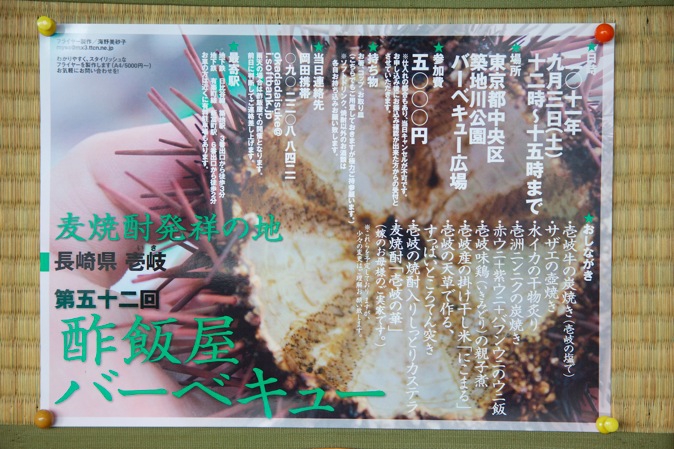 フライヤー製作/海野美砂子
わかりやすく、スタイリッシュな
フライヤーを製作します(A4/5000円〜)
お気軽にお問い合わせを!
★日時
二〇十一年
九月三日(土)
十二時〜十五時まで
★場所
東京都中央区
築地川公園
バーベキュー広場
★参加費
五〇〇〇円
★持ち物
★当日連絡先
岡田大介携帯
okadadaisuke@
i.softbank.jp
雨天の場合は酢飯屋での開催となります。
前日に判断してご連絡差し上げます。
★最寄駅
★おしながき
・壱岐牛の炭焼き(壱岐の塩で)
・サザエの壺焼き
・水イカの干物炙り
・壱州ニンニクの炭焼き
・赤ウニ+紫ウニ+バフンウニのウニ飯
・壱岐味鶏(いきみどり)の親子煮
・壱岐産の掛け干し米「にこまる」
・壱岐の天草で作る、
すっぱいところてん突き
・壱岐の焼酎入りしっとりカステラ
・麦焼酎「壱岐の華」
(嫁のお母様のご実家です。)
麦焼酎発祥の地
長崎県 壱岐
第五十二回
酢飯屋
バーベキュー